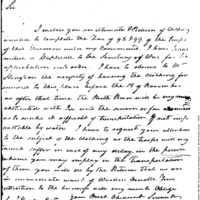 Sir
I enclose you an estimate & Return of Clothing
wanted to complete the Year of 98 & 99 of the Troops
of this Garrison under my Command. I have
in Duplicate to the Secretary of War for his
approbation and order. I have to observe to Mr
Hodgson the necessity of having the Clothing for
warded to this place before the of November
as after that time the North River will be
obstructed with Ice and the season so far
as to make it difficult of transportation if not im
practicable by water. I have to request your attention
to the subject of the Clothing as the Troops will
much suffer in case of any delay, on the person
whom you may employ in the Transportation
of them. you will see by the Return that we are
in immediate want of Woollen Overalls. Your
attention to the business will very much oblige
Your Most Obedient Servant